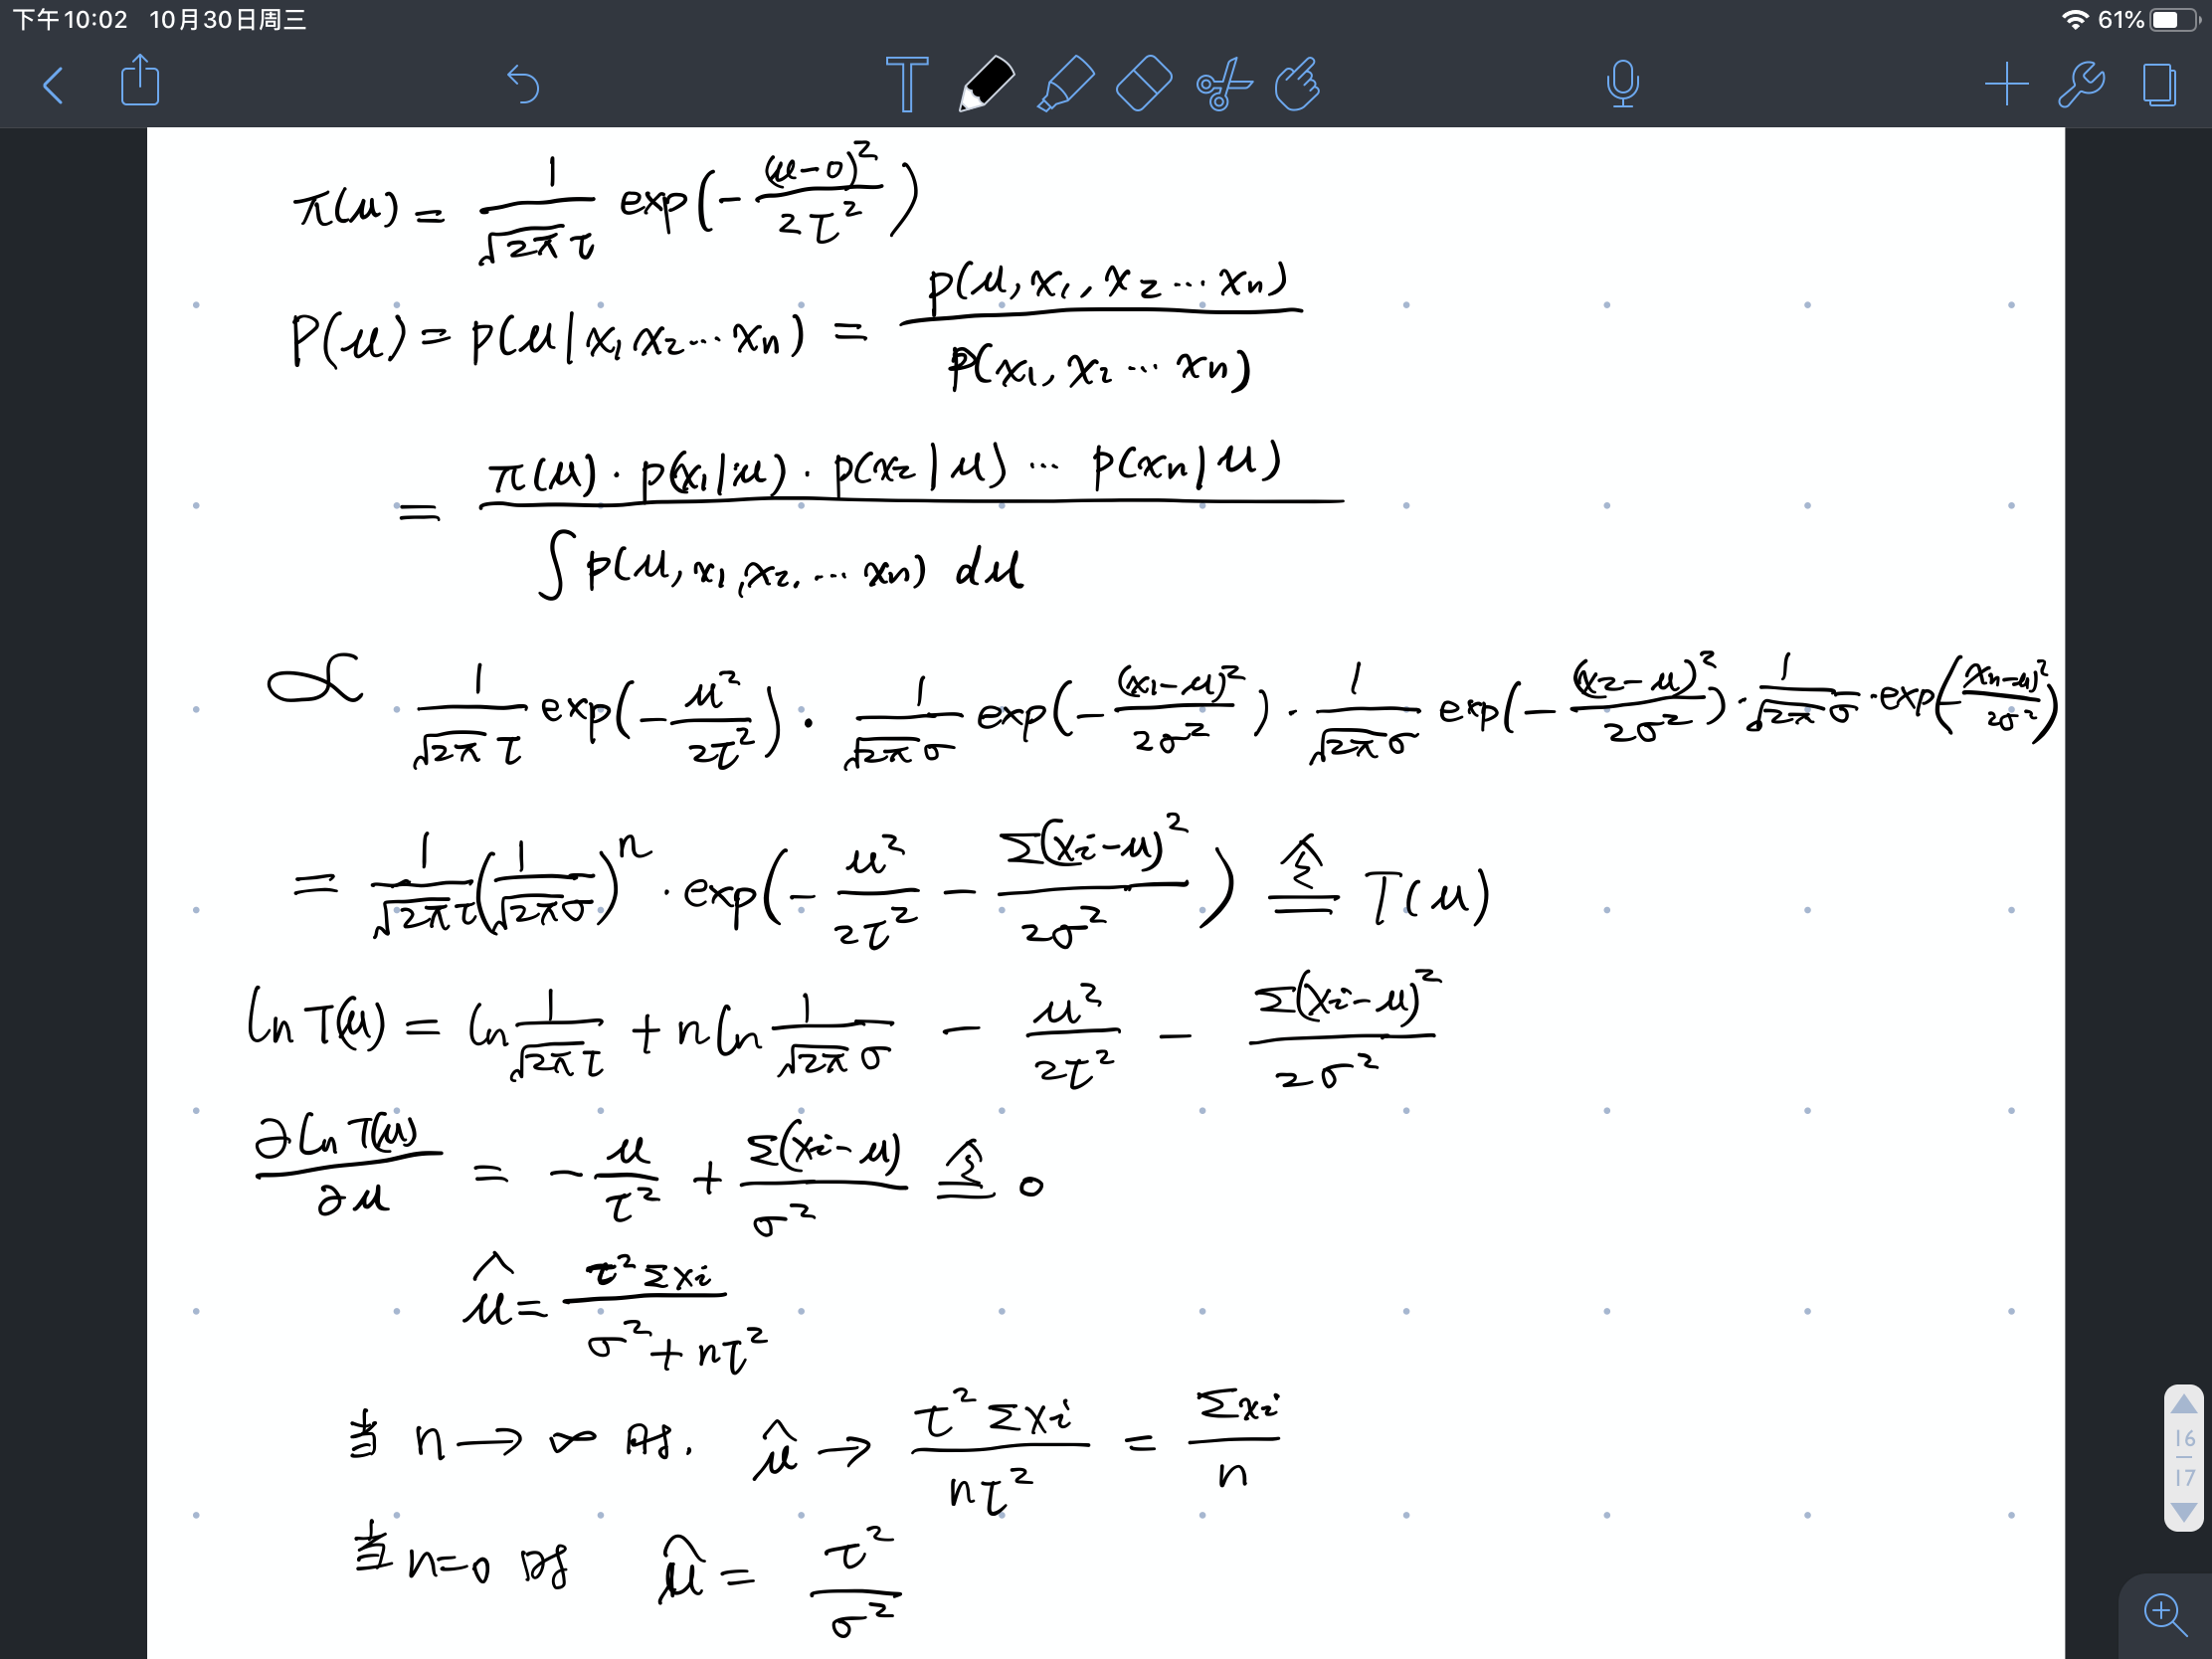 下午10:02 10月30日周三 61%
π(μ) = 1/(√2π τ) exp(-(μ-0)²/2τ²)
P(μ) = p(μ|x₁x₂…xn) = p(μ,x₁,x₂…xn)/p(x₁,x₂…xn)
= π(μ)·p(x₁|μ)·p(x₂|μ)…p(xn|μ) / ∫p(μ,x₁,x₂,…xn) dμ
∝ 1/(√2π τ) exp(-μ²/2τ²)·1/(√2π σ) exp(-(x₁-μ)²/2σ²)·1/(√2π σ) exp(-(x₂-μ)²/2σ²)·1/(√2π σ)·exp((xn-μ)²/2σ²)
= 1/(√2π τ)(1/(√2π σ))ⁿ·exp(-μ²/2τ² - Σ(xi-μ)²/2σ²) 令= T(μ)
ln T(μ) = ln 1/(√2π τ) + n ln 1/(√2π σ) - μ²/2τ² - Σ(xi-μ)²/2σ²
∂ln T(μ)/∂μ = -μ/τ² + Σ(xi-μ)/σ² 令= 0
μ̂ = τ²Σxi/(σ²+nτ²)
当 n→∞ 时. μ̂ → τ²Σxi/nτ² = Σxi/n
当 n=0 时 μ̂ = τ²/σ²
16
17